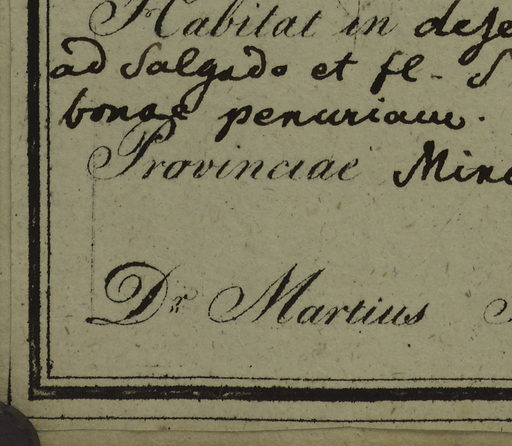 Habitat in dese
ad Salgado et fl. S
bonae penuriam.
Provinciae Mina
Dr. Martius